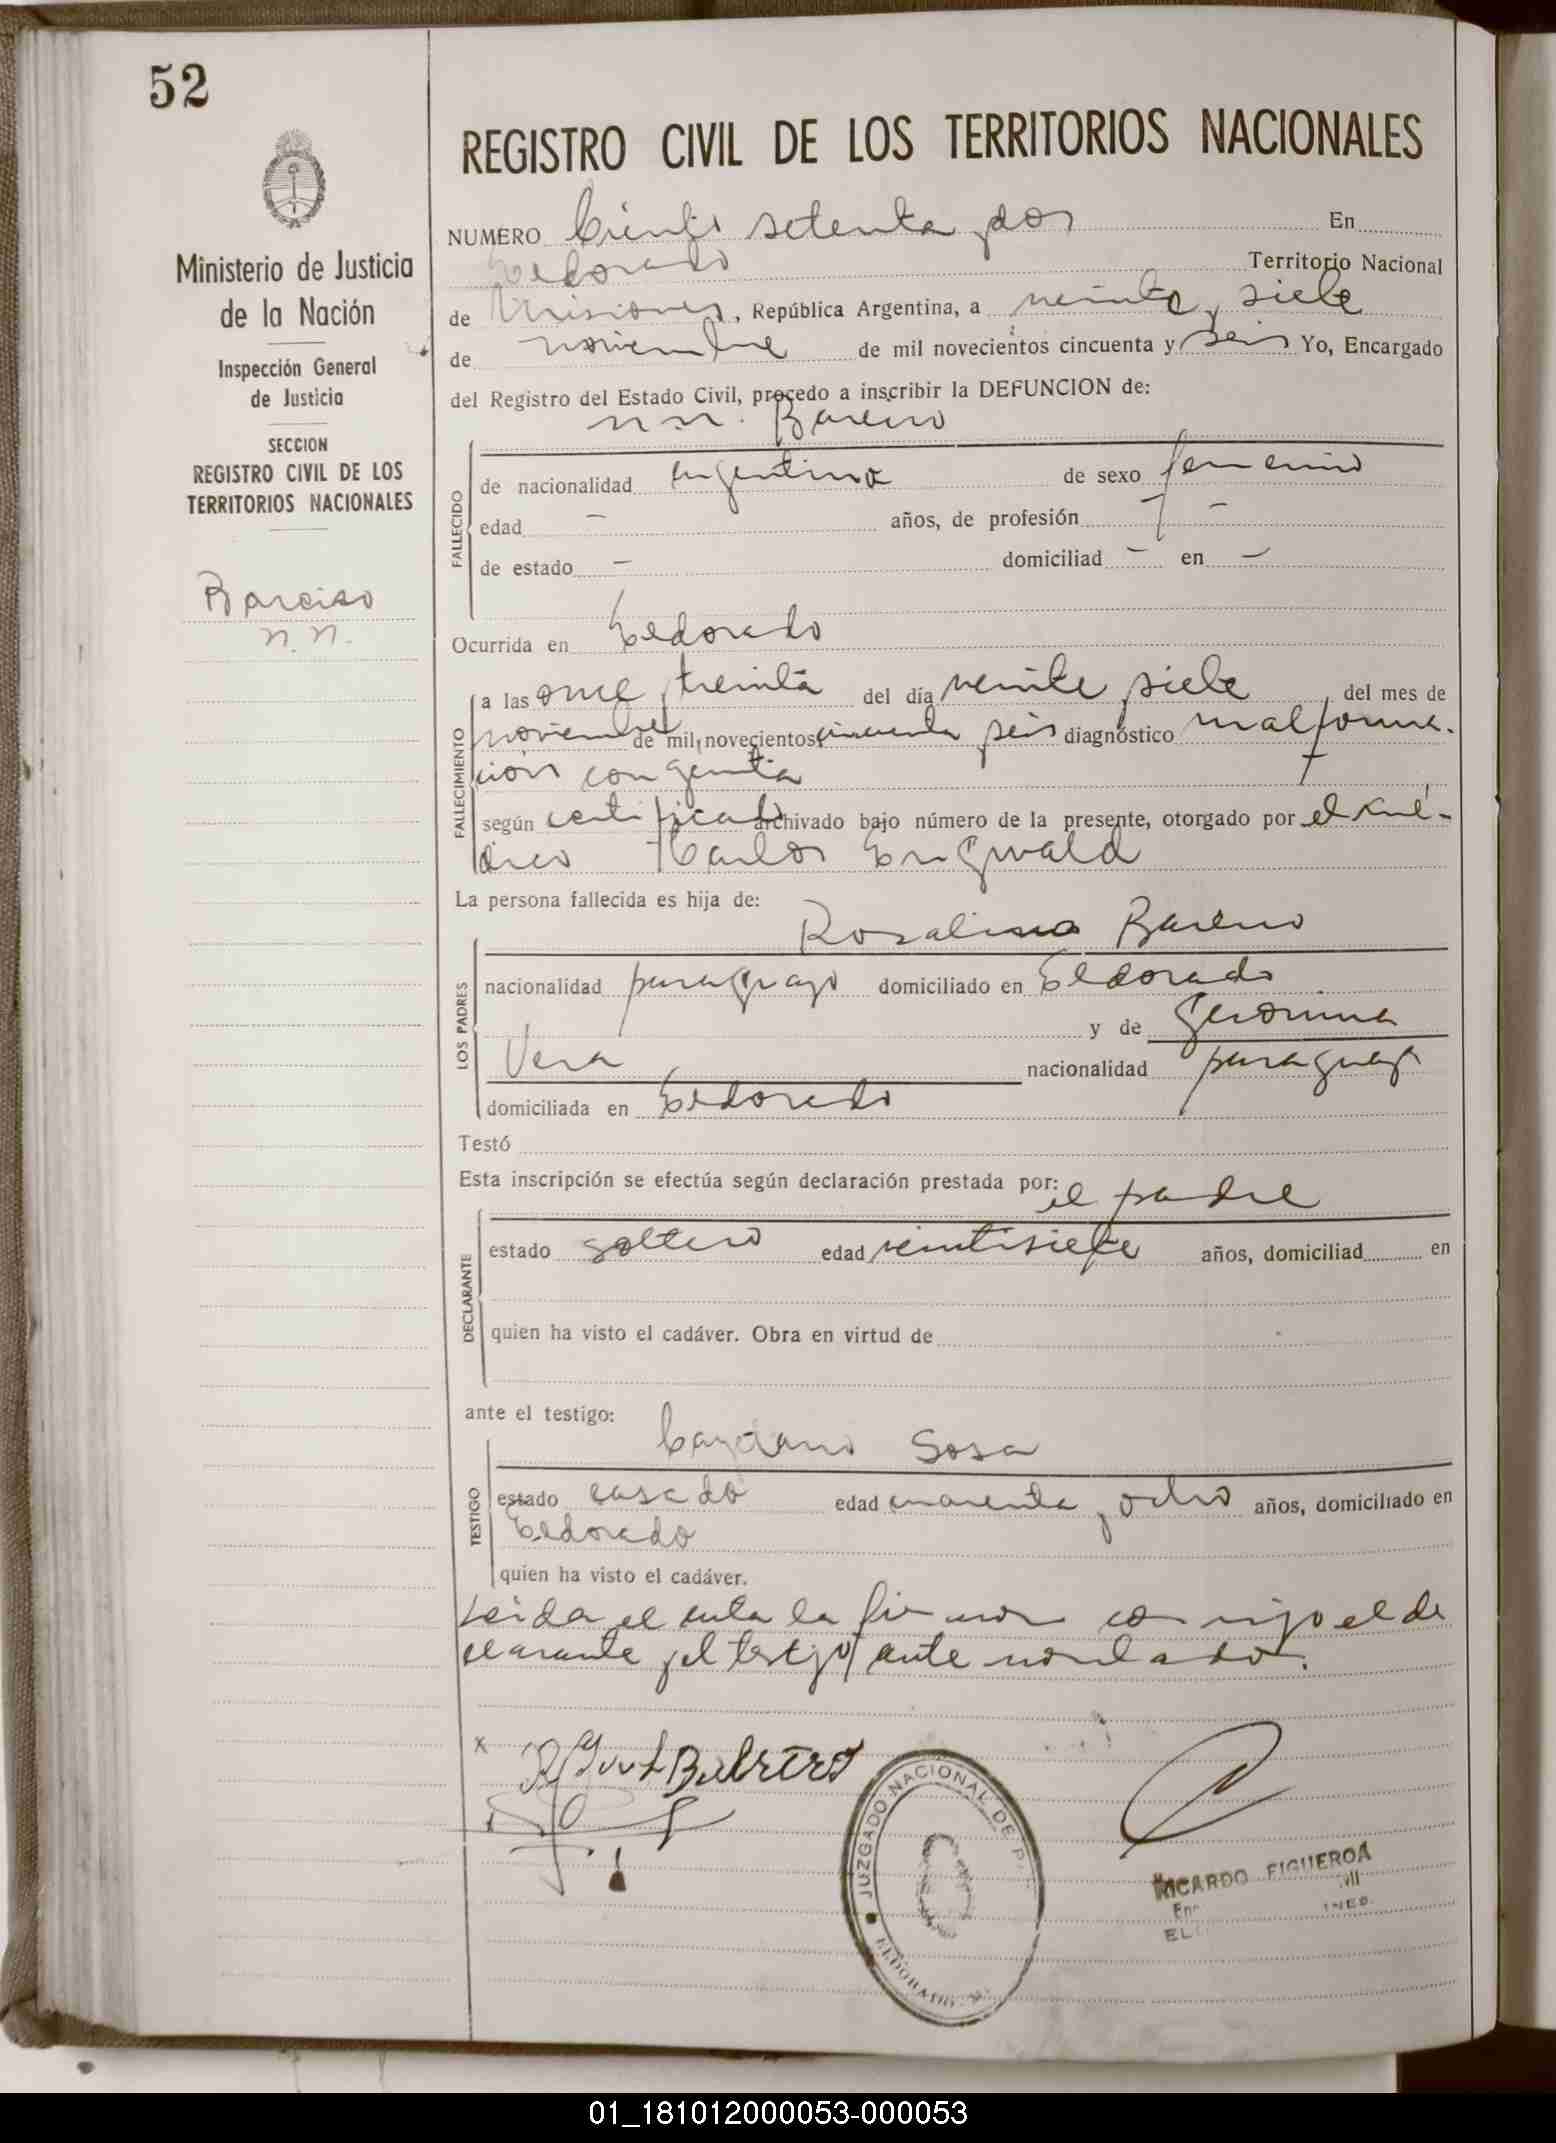 52
Ministerio de Justicia
de la Nación
Inspección General
de Justicia
SECCION
REGISTRO CIVIL DE LOS
TERRITORIOS NACIONALES
n.n.
REGISTRO CIVIL DE LOS TERRITORIOS NACIONALES
NUMERO Ciento setenta y dos En
Eldorado Territorio Nacional
de Misiones, República Argentina, a veinte y siete
de noviembre de mil novecientos cincuenta y seis Yo, Encargado
del Registro del Estado Civil, procedo a inscribir la DEFUNCION de:
n.n. Bareiro
FALLECIDO
de nacionalidad argentina de sexo femenino
edad — años, de profesión —
de estado — domiciliad — en —
Ocurrida en Eldorado
FALLECIMIENTO
a las once y treinta del día veinte y siete del mes de
noviembre de mil novecientos cincuenta y seis diagnóstico malforma-
ción congenita
según certificado archivado bajo número de la presente, otorgado por el mé-
dico Carlos
La persona fallecida es hija de:
LOS PADRES
Rosalino Bareiro
nacionalidad paraguayo domiciliado en Eldorado
y de Geronima
Vera nacionalidad paraguay
domiciliada en Eldorado
Testó
Esta inscripción se efectúa según declaración prestada por: el padre
DECLARANTE
estado soltero edad veintisiete años, domiciliad en
quien ha visto el cadáver. Obra en virtud de
ante el testigo:
TESTIGO
Cayetano Sosa
estado casado edad cuarenta y ocho años, domiciliado en
Eldorado
quien ha visto el cadáver.
Leida el acta la firman conmigo el de
clarante y el testigo ante nombrado.
x
JUZGADO NACIONAL DE P
ELDORADO
RICARDO FIGUEROA
01_181012000053-000053